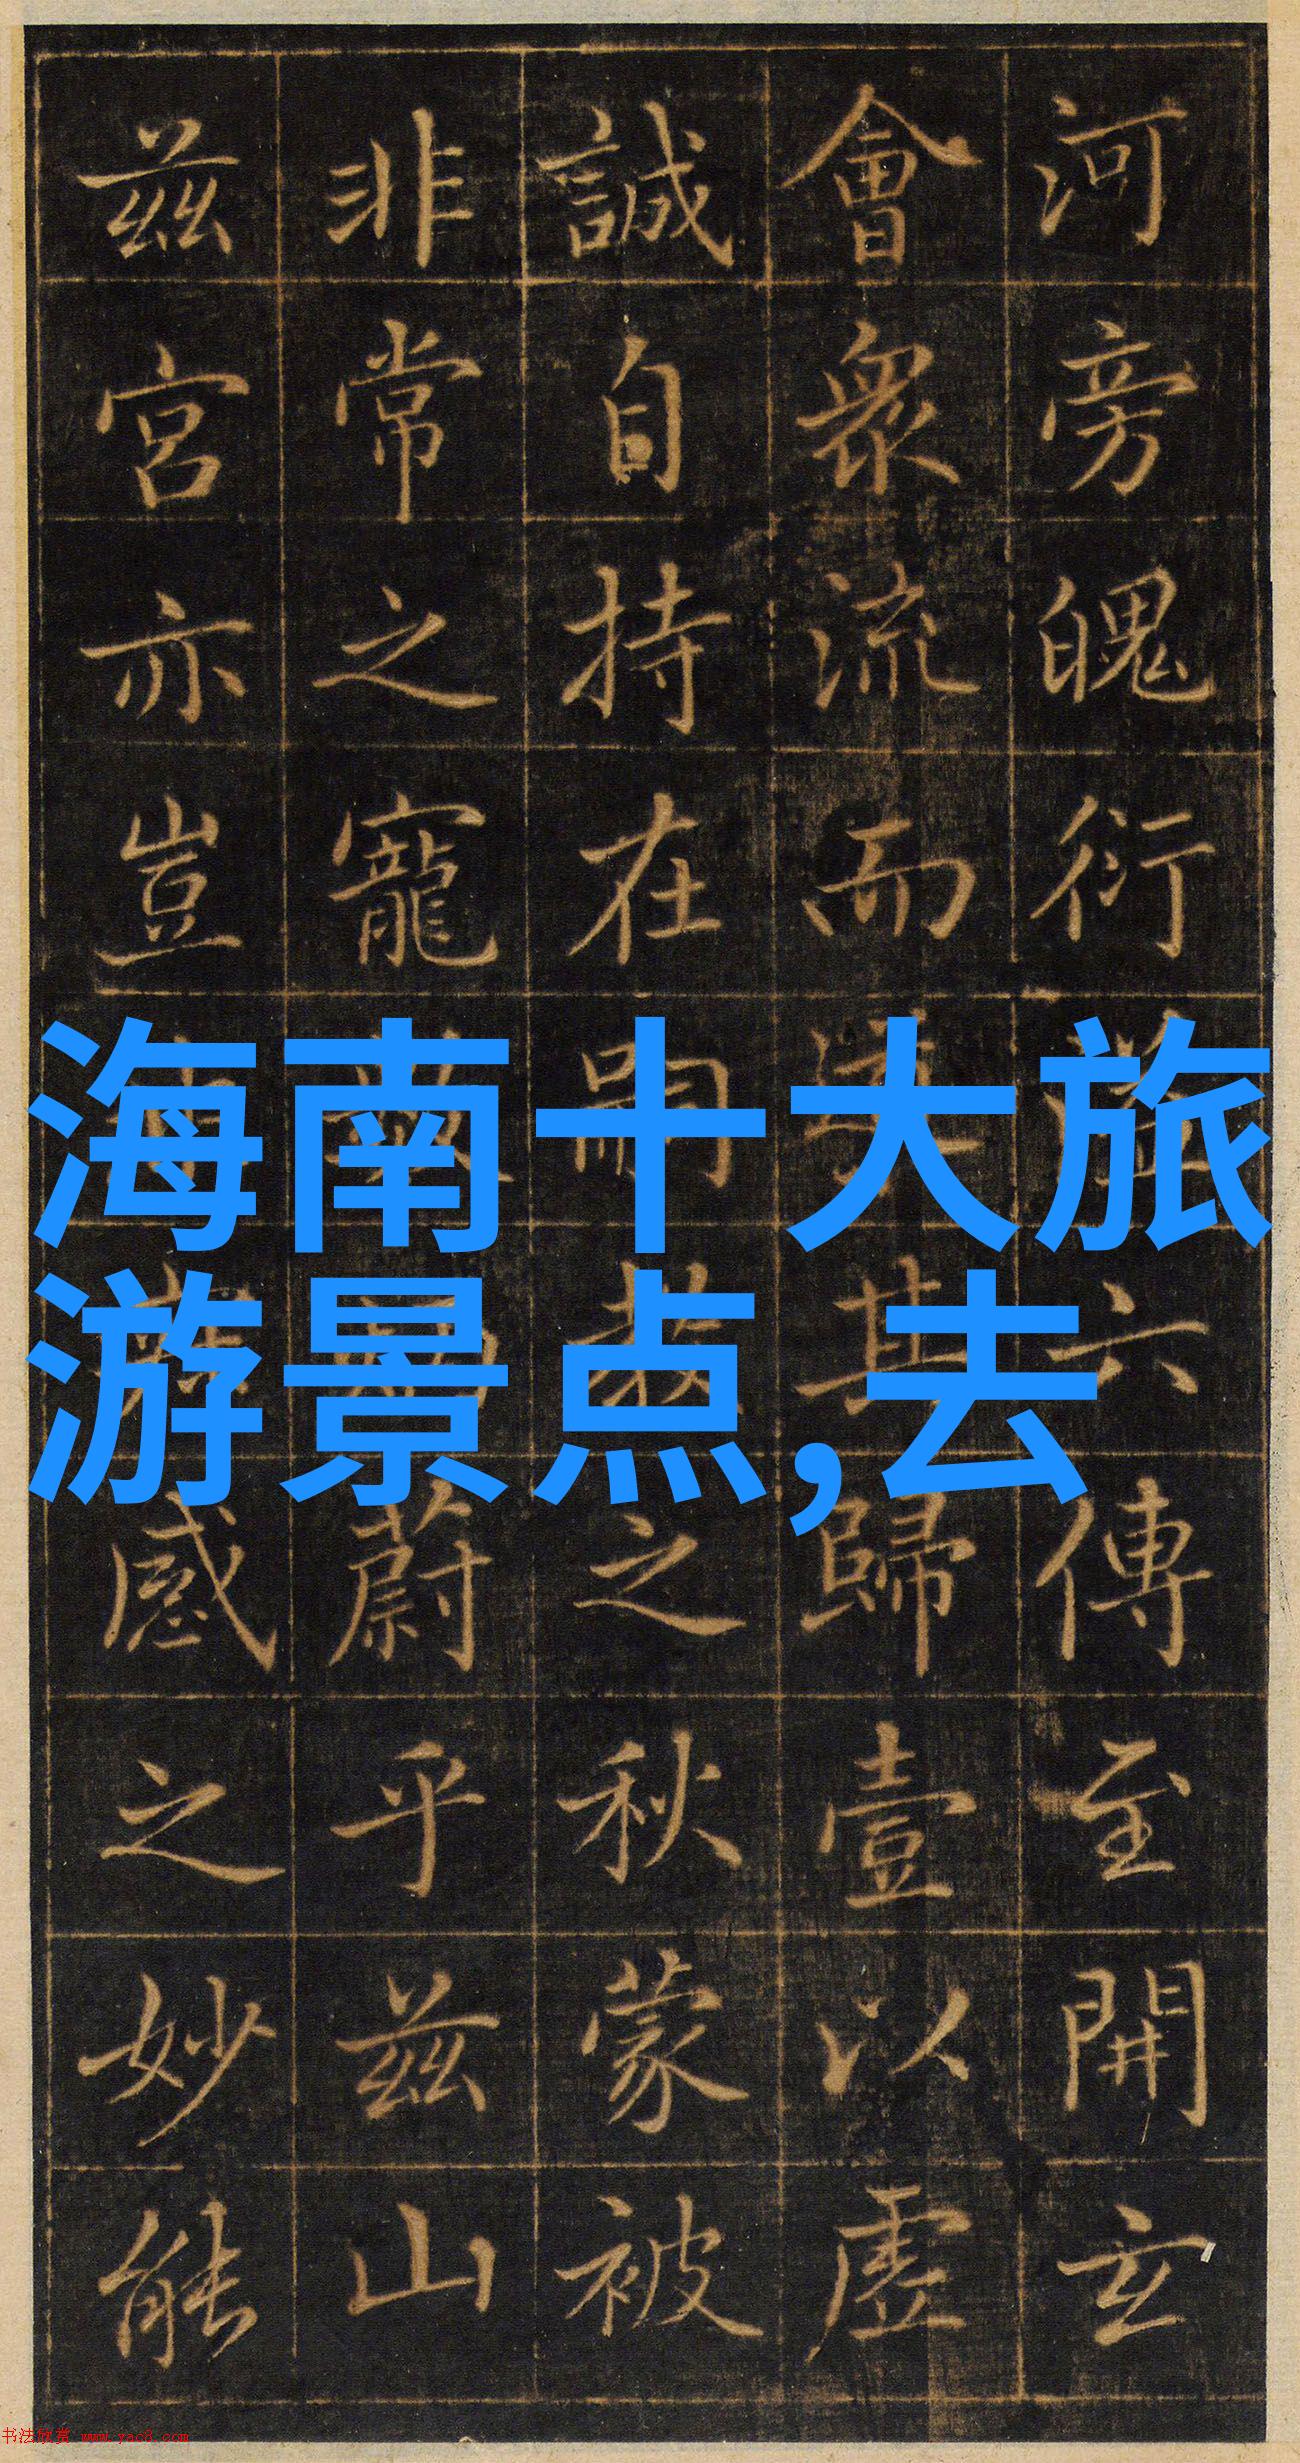 河旁魄衍
六傳至開玄
會衆流而
其歸壹以虛
誠自持在
嗣
之秋蒙被
非常之寵
蔚乎茲山
茲宮亦豈
感之妙能
海南十大旅
游景点,去
书法欣赏 www.yac8.com